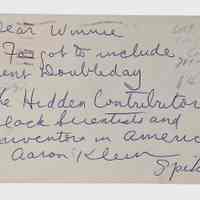 ear Winnie
Forgot to include
ent Doubleday
he Hidden Contributor
lack Scientists and
nventors in Americ
Aaron Klein